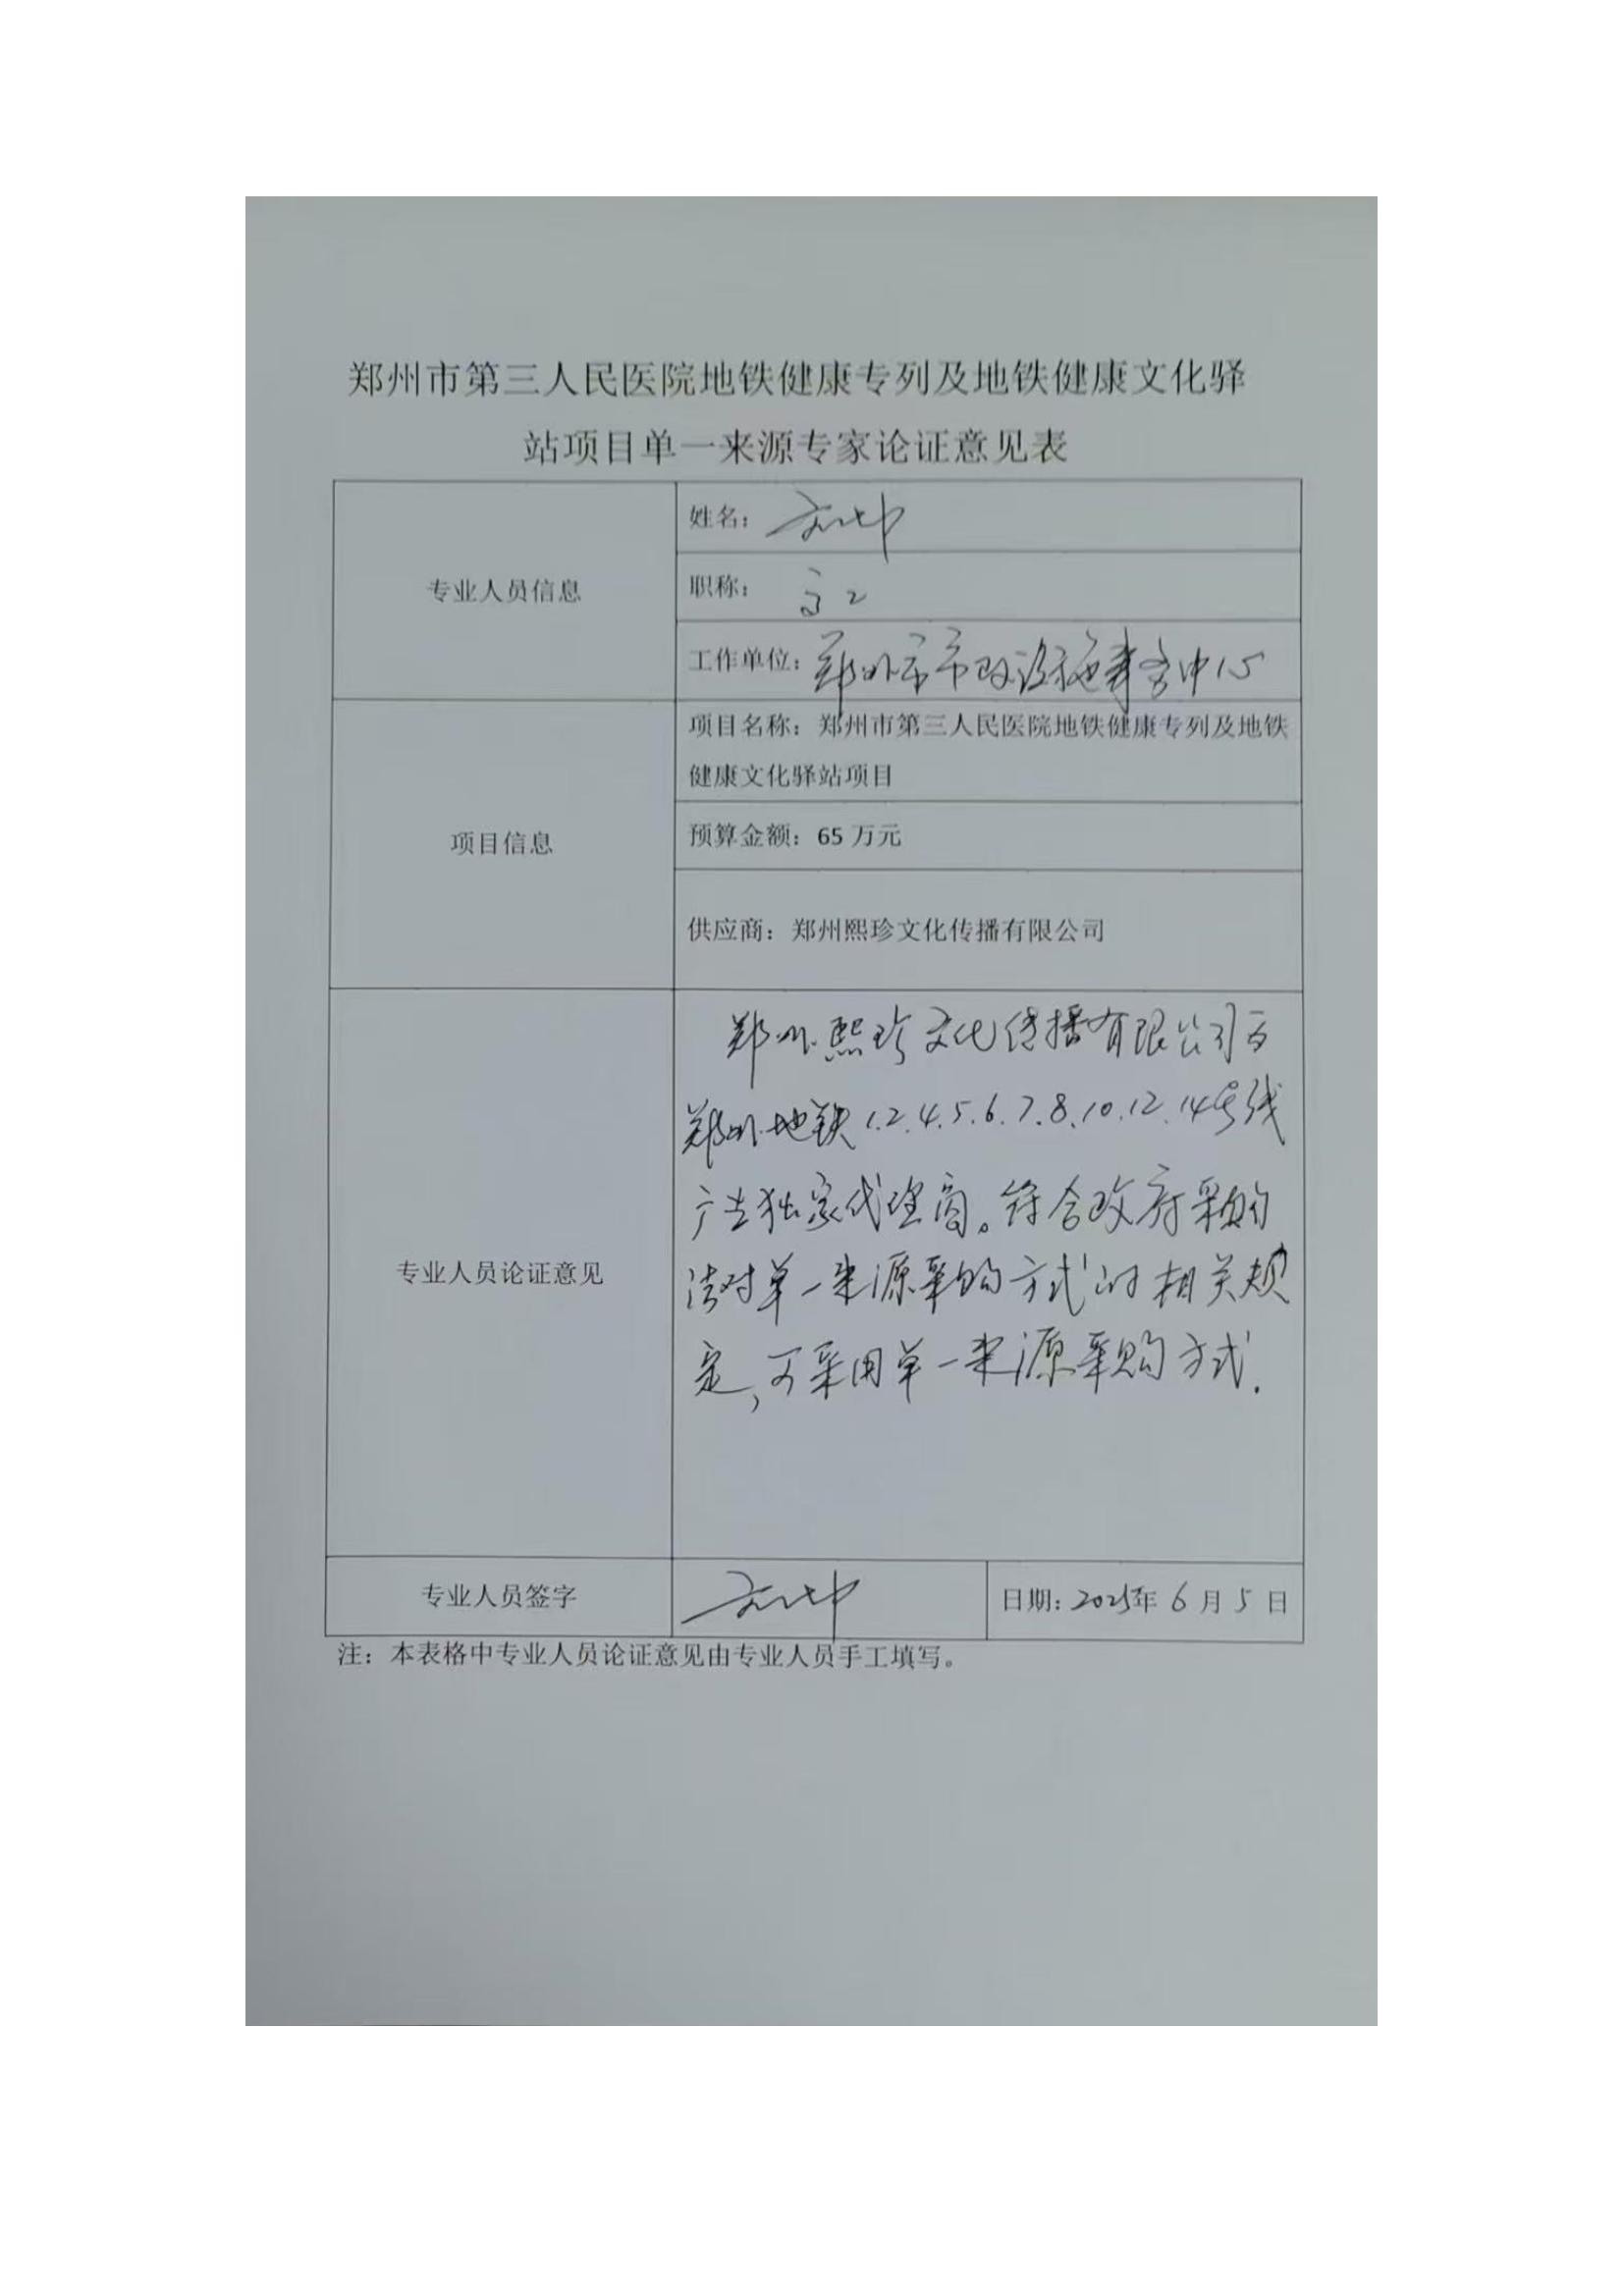 郑州市第三人民医院地铁健康专列及地铁健康文化驿
站项目单一来源专家论证意见表
专业人员信息
姓名：
职称：高工
工作单位：郑州市市政设施事务中心
项目信息
项目名称：郑州市第三人民医院地铁健康专列及地铁
健康文化驿站项目
预算金额：65 万元
供应商：郑州熙珍文化传播有限公司
专业人员论证意见
郑州熙珍文化传播有限公司为
郑州地铁1.2.4.5.6.7.8.10.12.14号线
广告独家代理商。符合政府采购
法对单一来源采购方式的相关规
定,可采用单一来源采购方式.
专业人员签字
日期：2025年 6 月 5 日
注：本表格中专业人员论证意见由专业人员手工填写。